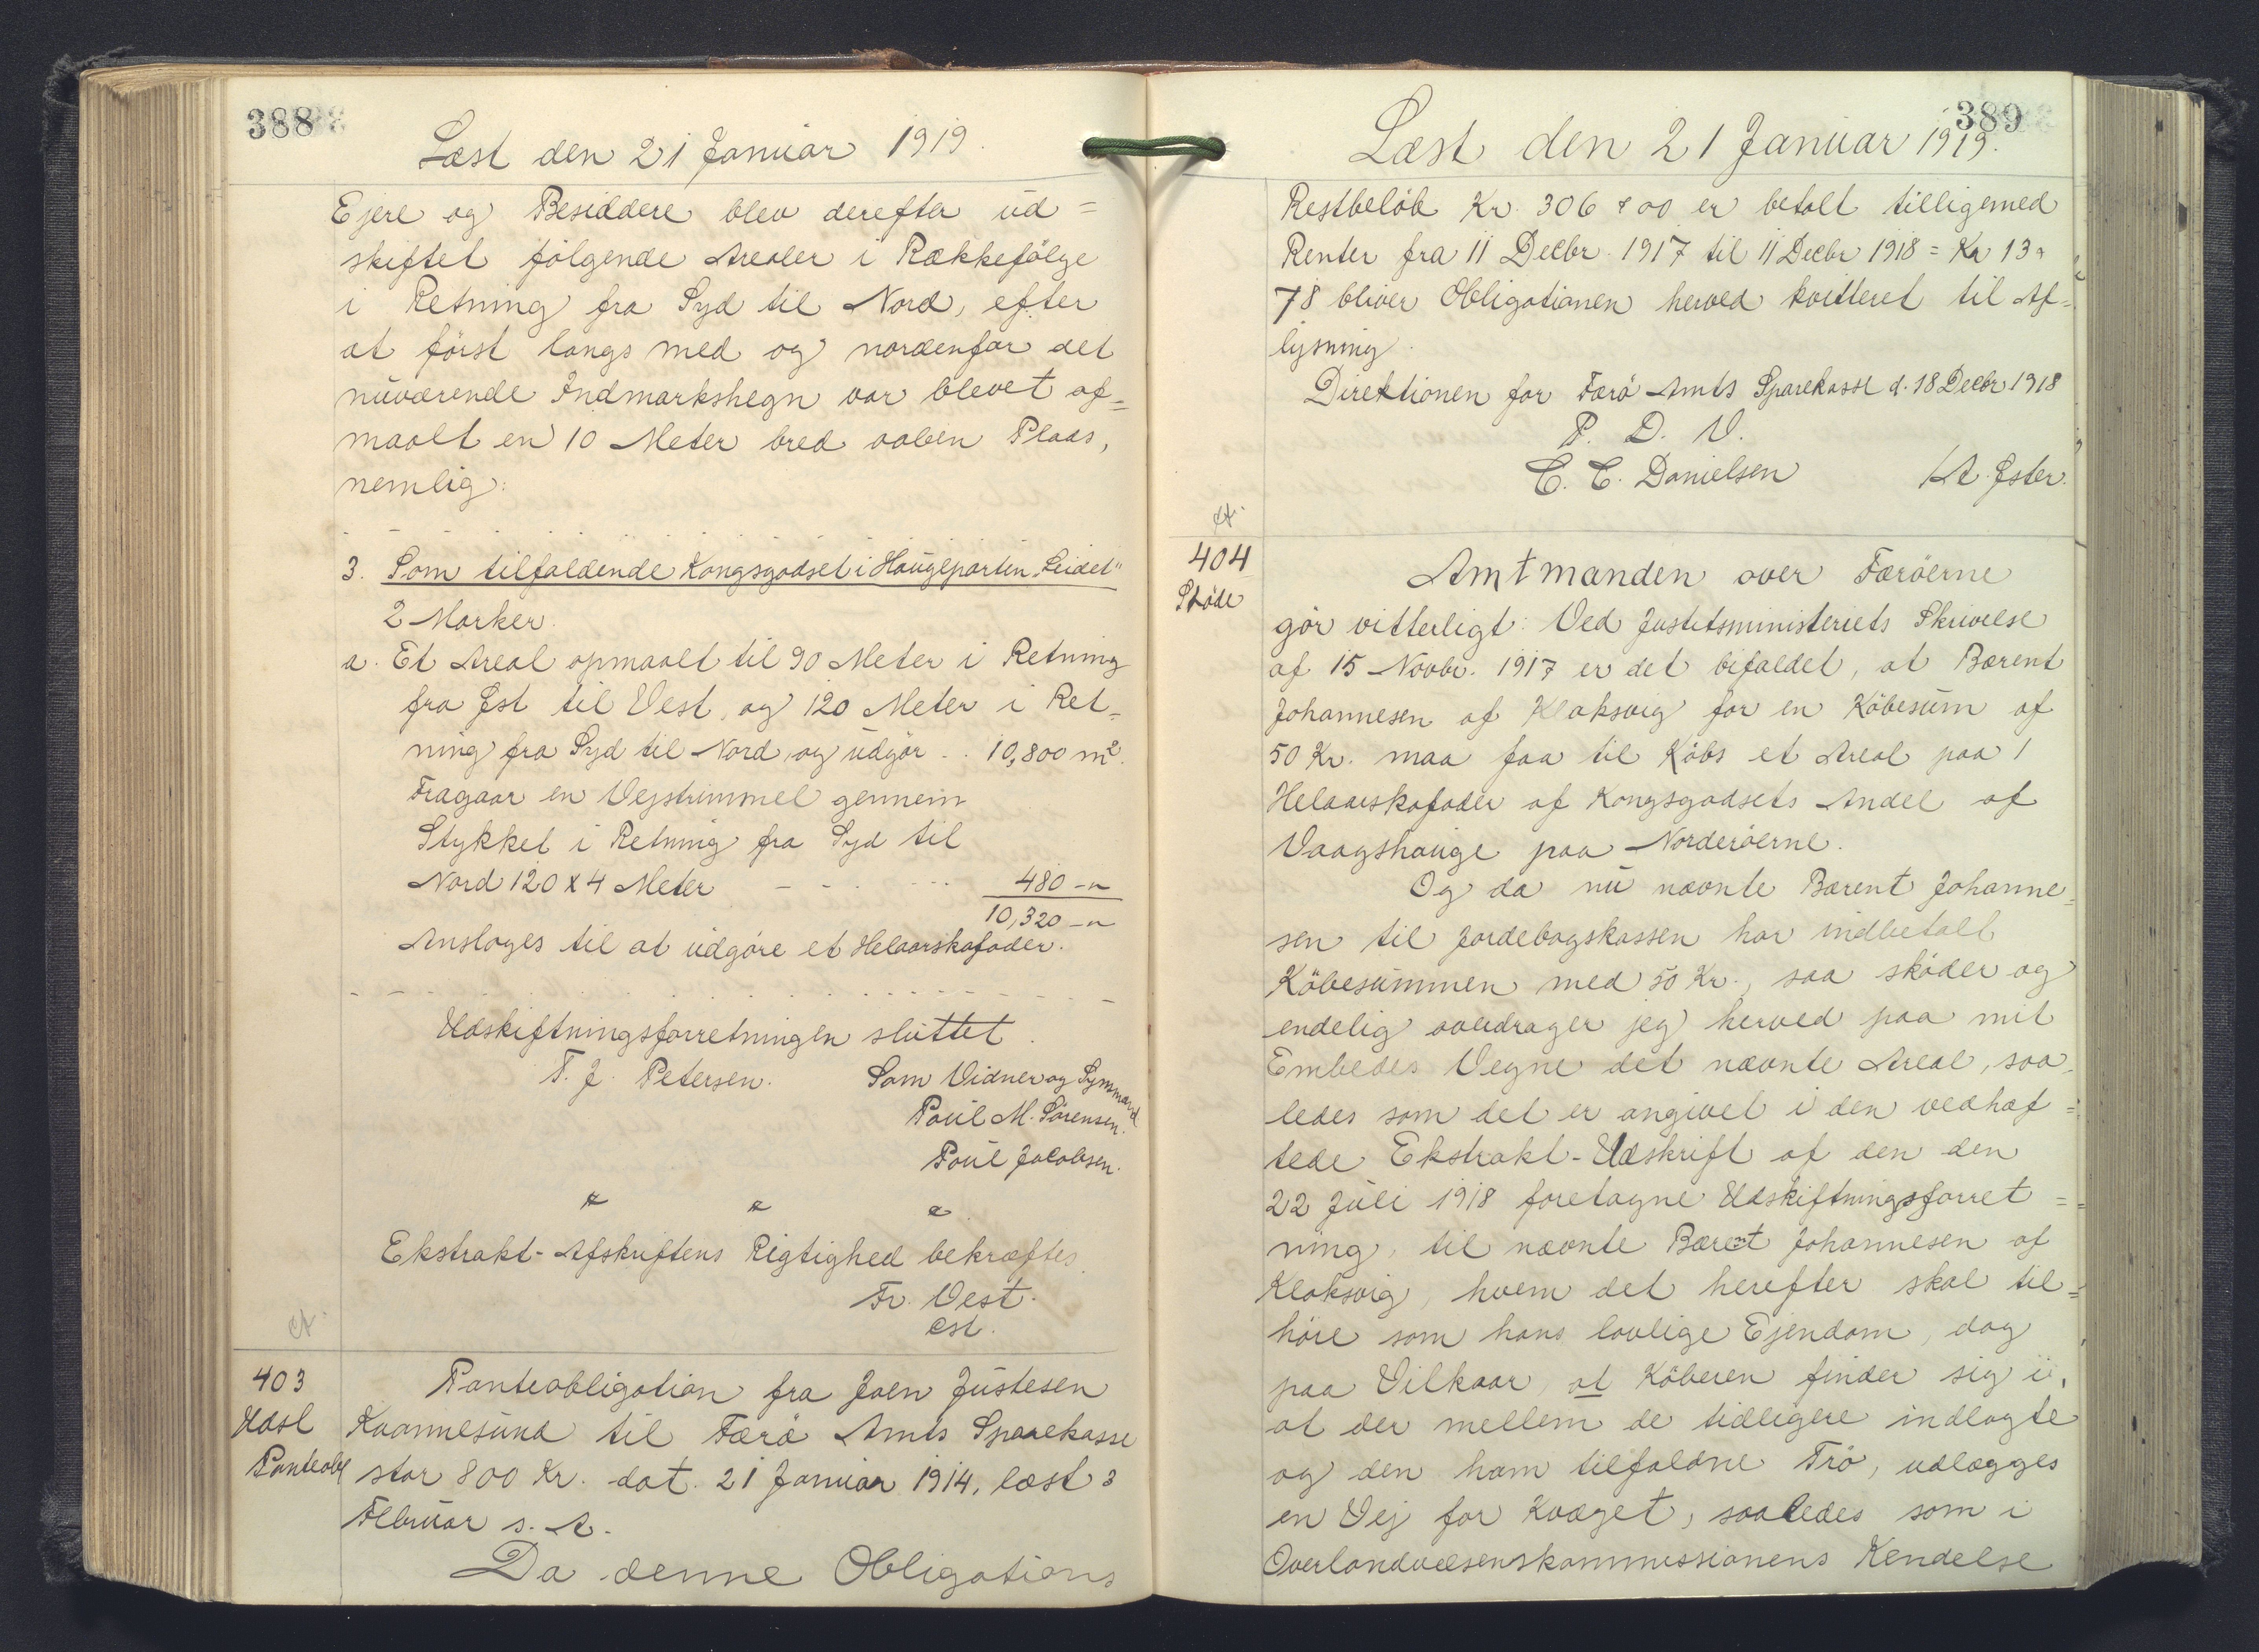 388
Læst den 21 Januar 1919.
Ejere og Besiddere blev derefter ud=
skiftet følgende Arealer i Rækkefølge
i Retning fra Syd til Nord, efter
at först langs med og nordenfor det
nuværende Indmarkshegn var blevet af=
maalt en 10 Meter bred aaben Plads,
nemlig:
3. Som tilfaldende Kongsgodset i Haugeparten "Leidet"
2 Marker.
a. Et Areal opmaalt til 90 Meter i Retning
fra Øst til Vest, og 120 Meter i Ret=
ning fra Syd til Nord og udgör .. 10,800 m².
Fragaar en Vejstrimmel gennem
Stykket i Retning fra Syd til
Nord 120 x 4 Meter - - - ... 480 - "
10,320 - "
Anslages til at udgöre et Helaarskofoder.
Udskiftningsforretningen sluttet.
T. J. Petersen. Som Vidner og Synsmænd
Poul M. Sörensen.
Poul Jacobsen.
" " "
Ekstrakt-Afskriftens Rigtighed bekræftes.
Fr. Vest.
cst.
403
Udsl
Panteobl
Panteobligation fra Joen Justesen
Kvannesund til Færö Amts Sparekasse
stor 800 Kr. dat. 21 Januar 1914, læst 3
Februar s. A.
Da denne Obligations
389
Læst den 21 Januar 1919.
Restbelöb Kr. 306 " 00 er betalt tilligemed
Renter fra 11 Decbr. 1917 til 11 Decbr 1918 = Kr 13 "
78 bliver Obligationen herved kvitteret til Af=
lysning.
Direktionen for Færö Amts Sparekasse d. 18 Decbr 1918
P. D. V.
C. C. Danielsen / A. Øster.
404
Sköde
Amtmanden over Færöerne
gör vitterligt: Ved Justitsministeriets Skrivelse
af 15 Novbr. 1917 er det bifaldet, at Bærent
Johannesen af Klaksvig for en Köbesum af
50 Kr. maa faa til Köbs et Areal paa 1
Helaarskofoder af Kongsgodsets Andel af
Vaagshauge paa Norderöerne.
Og da nu nævnte Bærent Johanne=
sen til Jordebogskassen har indbetalt
Köbesummen med 50 Kr., saa sköder og
endelig overdrager jeg herved paa mit
Embedes Vegne det nævnte Areal, saa=
ledes som det er angivet i den vedhæf=
tede Ekstrakt-Udskrift af den den
22 Juli 1918 foretagne Udskiftningsforret=
ning, til nævnte Bærent Johannesen af
Klaksvig, hvem det herefter skal til=
höre som hans lovlige Ejendom, dog
paa Vilkaar, at Köberen finder sig i,
at der mellem de tidligere indlagte
og den ham tilfaldne Trö, udlægges
en Vej for Kvæget, saaledes som i
Overlandvæsenskommissionens Kendelse